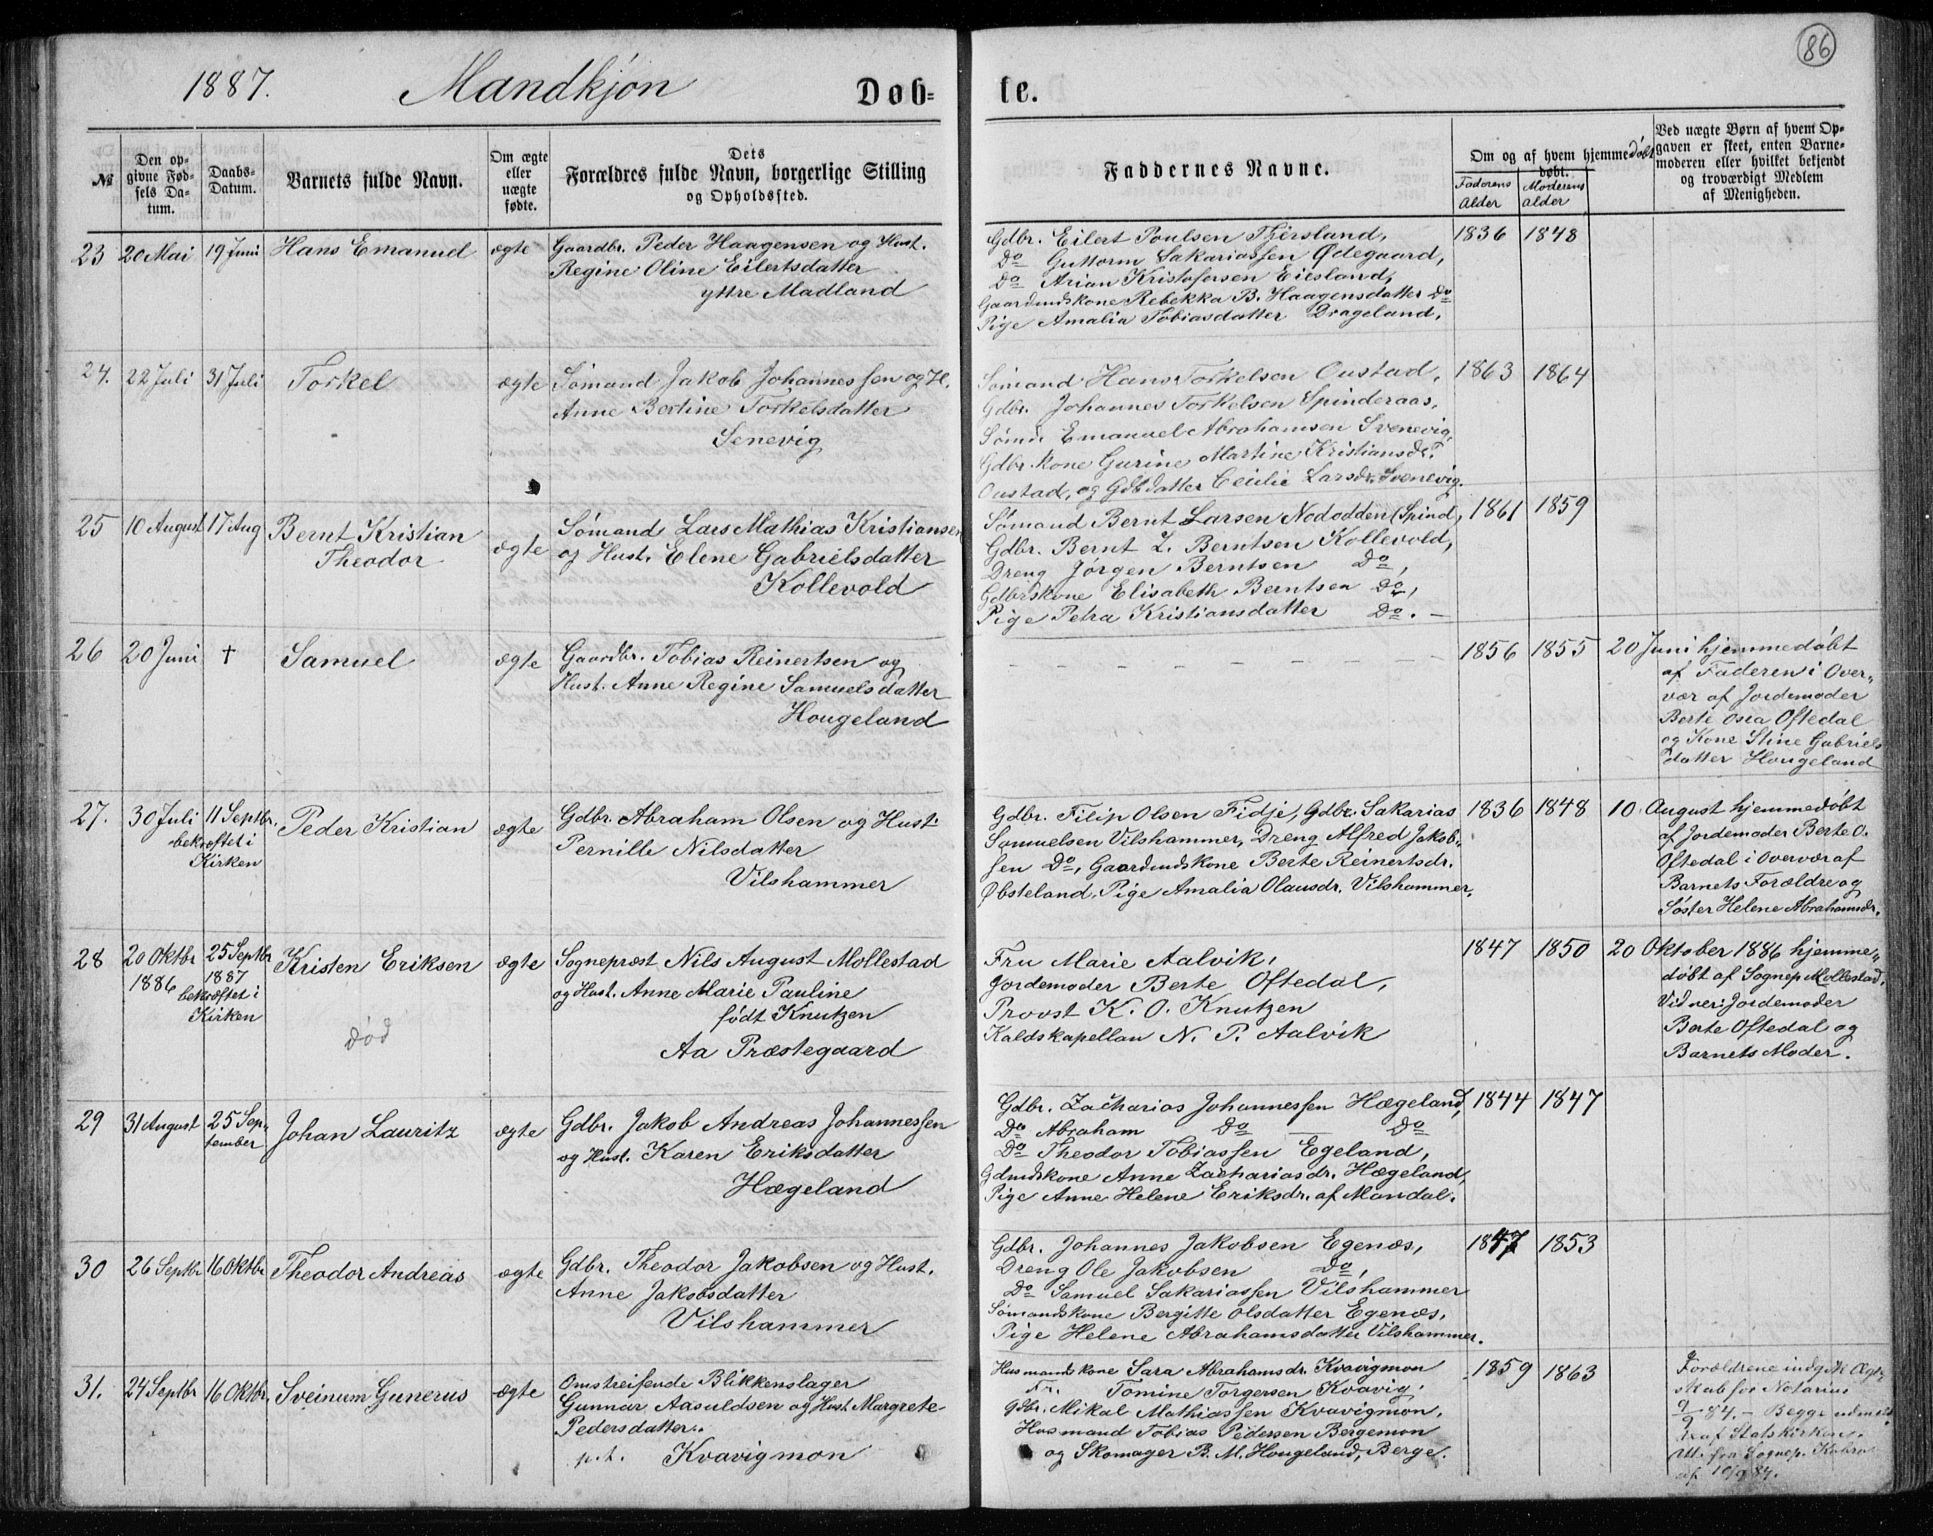 86
1887. Mandkjøn Døb= te.
№ Den opgivne Fødsels Datum. Daabs-Datum. Barnets fulde Navn. Om ægte eller uægte fødte. Dets Forældres fulde Navn, borgerlige Stilling og Opholdssted.
Faddernes Navne. Om og af hvem hjemmedøbt døbt. Faderens Alder Moderens alder Ved uægte Børn af hvem Opgaven er skeet, enten Barnemoderen eller hvilket bekjendt og troværdigt Medlem af Menigheden.
23 20 Mai 19 Juni Hans Emanuel ægte
Gaardbr. Peder Haagensen og Hust.
Regine Oline Eilertsdatter
yttre Madland
Gdbr. Eilert Poulsen Tjersland,
Do Guttorm Sakariassen Ødegaard,
Do Arian Kristofersen Eiesland,
Gaardmdskone Rebekka B. Haagensdatter Do
Pige Amalia Tobiasdatter Drageland,
1836 1848
24. 22 Juli 31 Juli Torkel ægte
Sømand Jakob Johannessen og H.
Anne Bertine Torkelsdatter
Senevig
Sømand Hans Torkelsen Oustad,
Gdbr. Johannes Torkelsen Spinderaas,
Sømd Emanuel Abrahamsen Svenevig,
Gdbr. kone Gurine Martine Kristiansdr.
Oustad, og Gdb datter Cecilie Larsdr. Svenevig.
1863 1864
25 10 August 17 Aug Bernt Kristian
Theodor
ægte
Sømand Lars Mathias Kristiansen
og Hust. Elene Gabrielsdatter
Kollevold
Sømand Bernt Larsen Nododden (Spind,
Gdbr. Bernt L. Berntsen Kollevold,
Dreng Jørgen Berntsen Do,
Gdberskone Elisabeth Berntsen Do,
Pige Petra Kristiansdatter Do. –
1861 1859
26 20 Juni † Samuel ægte
Gaardbr. Tobias Reinertsen og
Hust. Anne Regine Samuelsdatter
Hougeland
1856 1855
20 Juni hjemmedøbt
af Faderen i Over„
vær af Jordemoder
Berte Osea Oftedal
og Kone Stine Gabriels
datter Hougeland
27. 30 Juli 11 Septbr.
bekræftet i
Kirken
Peder Kristian ægte
Gdbr. Abraham Olsen og Hust
Pernille Nilsdatter
Vilshammer
Gdbr. Filip Olsen Fidje, Gdbr. Sakarias
Samuelsen Vilshammer, Dreng Alfred Jakob„
sen Do, Gaardmdskone Berte Reinertsdr.
Øbsteland, Pige Amalia Olausdr. Vilshammer.
1836 1848
10 August hjemmedøbt
af Jordemoder Berte O.
Oftedal i Overvær af
Barnets Forældre og
Søster Helene Abrahamsdr.
28 20 Oktbr
1886
25 Septbr
1887
bekræftet i
Kirken
Kristen Eriksen
død
ægte
Sognepræst Nils August Mollestad
og Hust. Anne Marie Pauline
født Knutzen
Aa Præstegaard
Fru Marie Aalvik,
Jordemoder Berte Oftedal,
Provst K. O. Knutzen
Kaldskapellan N. P. Aalvik
1847 1850
20 Oktober 1886 hjemme„
døbt af Sognep Mollestad.
Vidner: Jordemoder
Berte Oftedal og
Barnets Moder.
29 31 August 25 Sep„
tember
Johan Lauritz ægte
Gdbr. Jakob Andreas Johannessen
og Hust. Karen Eriksdatter
Hægeland
Gdbr. Zacharias Johannessen Hægeland,
Do Abraham Do — Do
Do Theodor Tobiassen Egeland,
Gdmdskone Anne Zachariasdr. Hægeland,
Pige Anne Helene Eriksdr. af Mandal.
1844 1847
30 26 Septbr 16 Oktbr Theodor Andreas ægte
Gdbr. Theodor Jakobsen og Hust.
Anne Jakobsdatter
Vilshammer
Gdbr. Johannes Jakobsen Egenæs,
Dreng Ole Jakobsen Do,
Do Samuel Sakariassen Vilshammer
Sømandskone Bergitte Olsdatter Egenæs,
Pige Helene Abrahamsdatter Vilshammer.
1847 1853
31. 24 Septbr 16 Oktbr. Sveinum Gunerus ægte
Omstreifende Blikkenslager
Gunnar Aasuldsen og Hust. Margrete
Pedersdatter.
p.t. Kvavigmon
Husmandskone Sara Abrahamsdr. Kvavigmon
Tomine Torgersen Kvavig,
Gdbr. Mikal Mathiassen Kvavigmon,
Husmand Tobias Pedersen Bergemon
og Skomager B. M. Hougeland, Berge.
1859 1863
Forældrene indgik Ægte
skab for Notarius
2/9 84. – Begge udmeldt
af Statskirken.
Att. fra Sognep.
af 10/9 84.